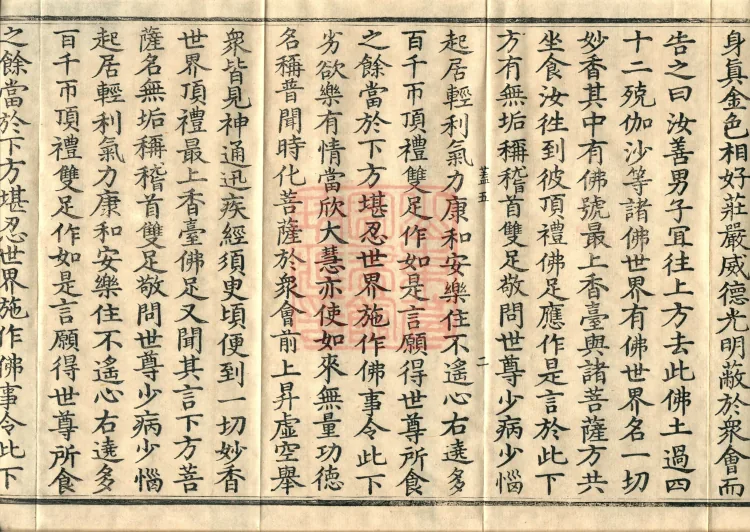 身真金色相好莊嚴威德光明蔽於衆會而
告之曰汝善男子冝往上方去此佛土過四
十二殑伽沙等諸佛世界有佛世界名一切
妙香其中有佛號最上香臺與諸菩薩方共
坐食汝往到彼頂禮佛足應作是言於此下
方有無垢稱稽首雙足敬問世尊少病少惱
蓋五 二
起居輕利氣力康和安樂住不遙心右遶多
百千帀頂禮雙足作如是言願得世尊所食
之餘當於下方堪忍世界施作佛事令此下
劣欲樂有情當欣大慧亦使如來無量功德
名稱普聞時化菩薩於衆會前上昇虛空舉
衆皆見神通迅疾經須臾頃便到一切妙香
世界頂禮最上香臺佛足又聞其言下方菩
薩名無垢稱稽首雙足敬問世尊少病少惱
起居輕利氣力康和安樂住不遙心右遶多
百千帀頂禮雙足作如是言願得世尊所食
之餘當於下方堪忍世界施作佛事令此下